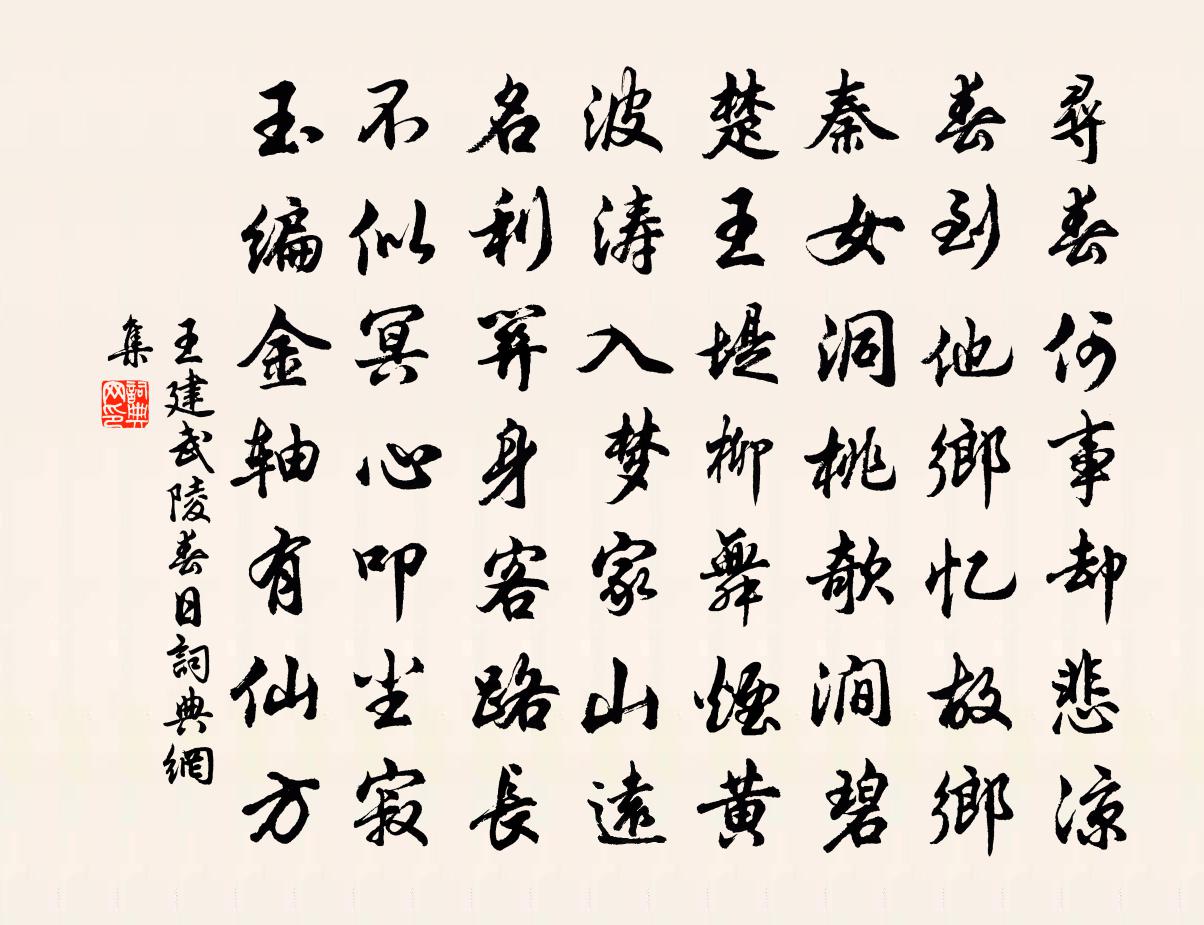 尋春何事却悲涼
春到他鄉忆故鄉
秦女洞桃欹澗碧
楚王堤柳舞煙黄
波涛入梦家山遠
名利関身客路長
不似冥心叩尘寂
玉编金轴有仙方
王建武陵春日詞典網
集
詞典
网印